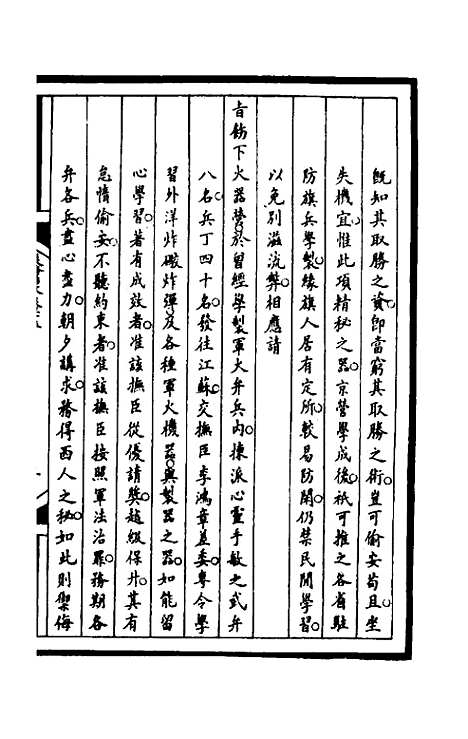 既知其取勝之資。即當窮其取勝之術。豈可偷安苟且。坐
失機宜。惟此項精秘之器。京營學成後。祇可推之各省駐
防旗兵學製。緣旗人居有定所。較易防閑。仍禁民間學習。
以免別滋流弊。相應請
旨飭下火器營。於曾經學製軍火弁兵內。揀派心靈手敏之武弁
八名。兵丁四十名。發往江蘇。交撫臣李鴻章差委。專令學
習外洋炸礮炸彈。及各種軍火機器。與製器之器。如能留
心學習。著有成效者。准該撫臣從優請獎。超級保升。其有
怠惰偷安。不聽約束者。准該撫臣按照軍法治罪。務期各
弁各兵。盡心盡力。朝夕講求。務得西人之秘。如此則禦侮